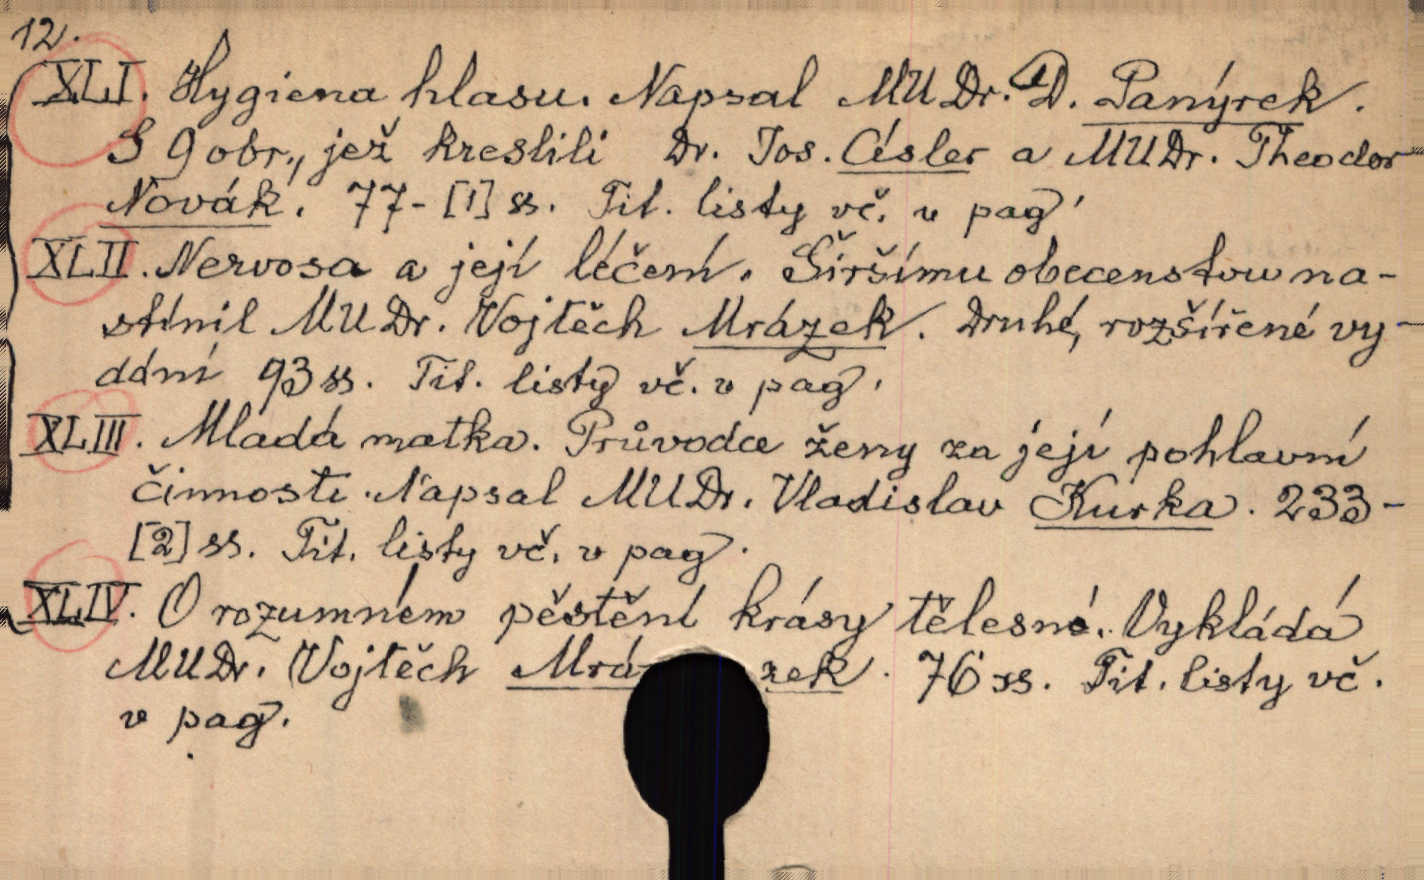 12.
XLI. Hygiena hlasu. Napsal MUDr. D. Panýrek.
S 9 obr., jež kreslili Dr. Jos. Císler a MUDr. Theodor
Novák. 77-[1] ss. Tit. listy vč. v pag.
XLII. Nervosa a její léčení. Širšímu obecenstvu na-
stínil MUDr. Vojtěch Mrázek. Druhé, rozšířené vy-
dání 93 ss. Tit. listy vč. v pag.
XLIII. Mladá matka. Průvodce ženy za její pohlavní
činnosti. Napsal MUDr. Vladislav Kurka. 233-
[2] ss. Tit. listy vč. v pag.
XLIV. O rozumném pěstění krásy tělesné. Vykládá
MUDr. Vojtěch Mrázek. 76 ss. Tit. listy vč.
v pag.